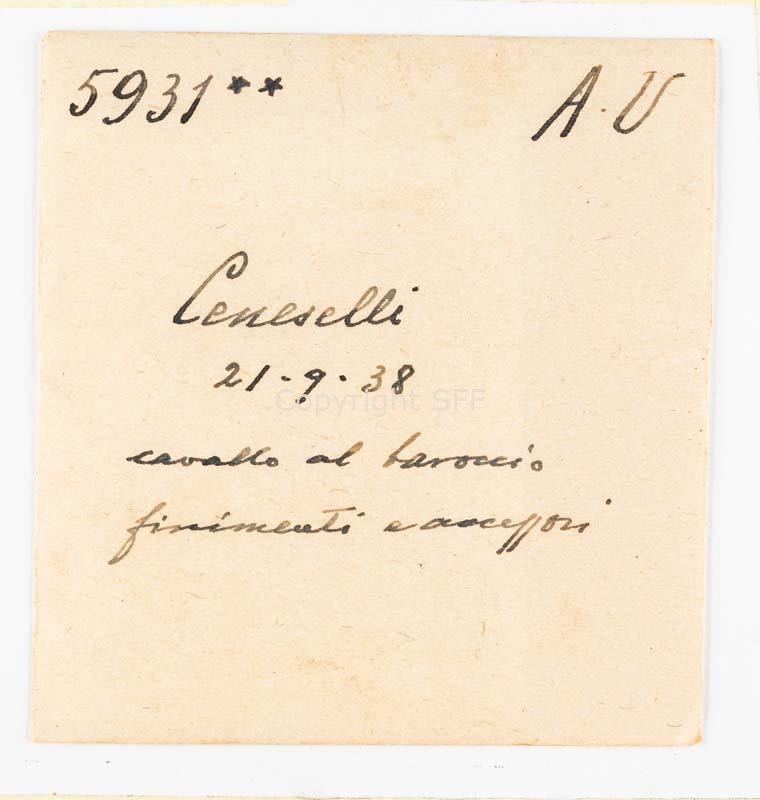 5931** A.V
Ceneselli
21-9-38
Copyright SFF
cavallo al baroccio
finimenti e accessori